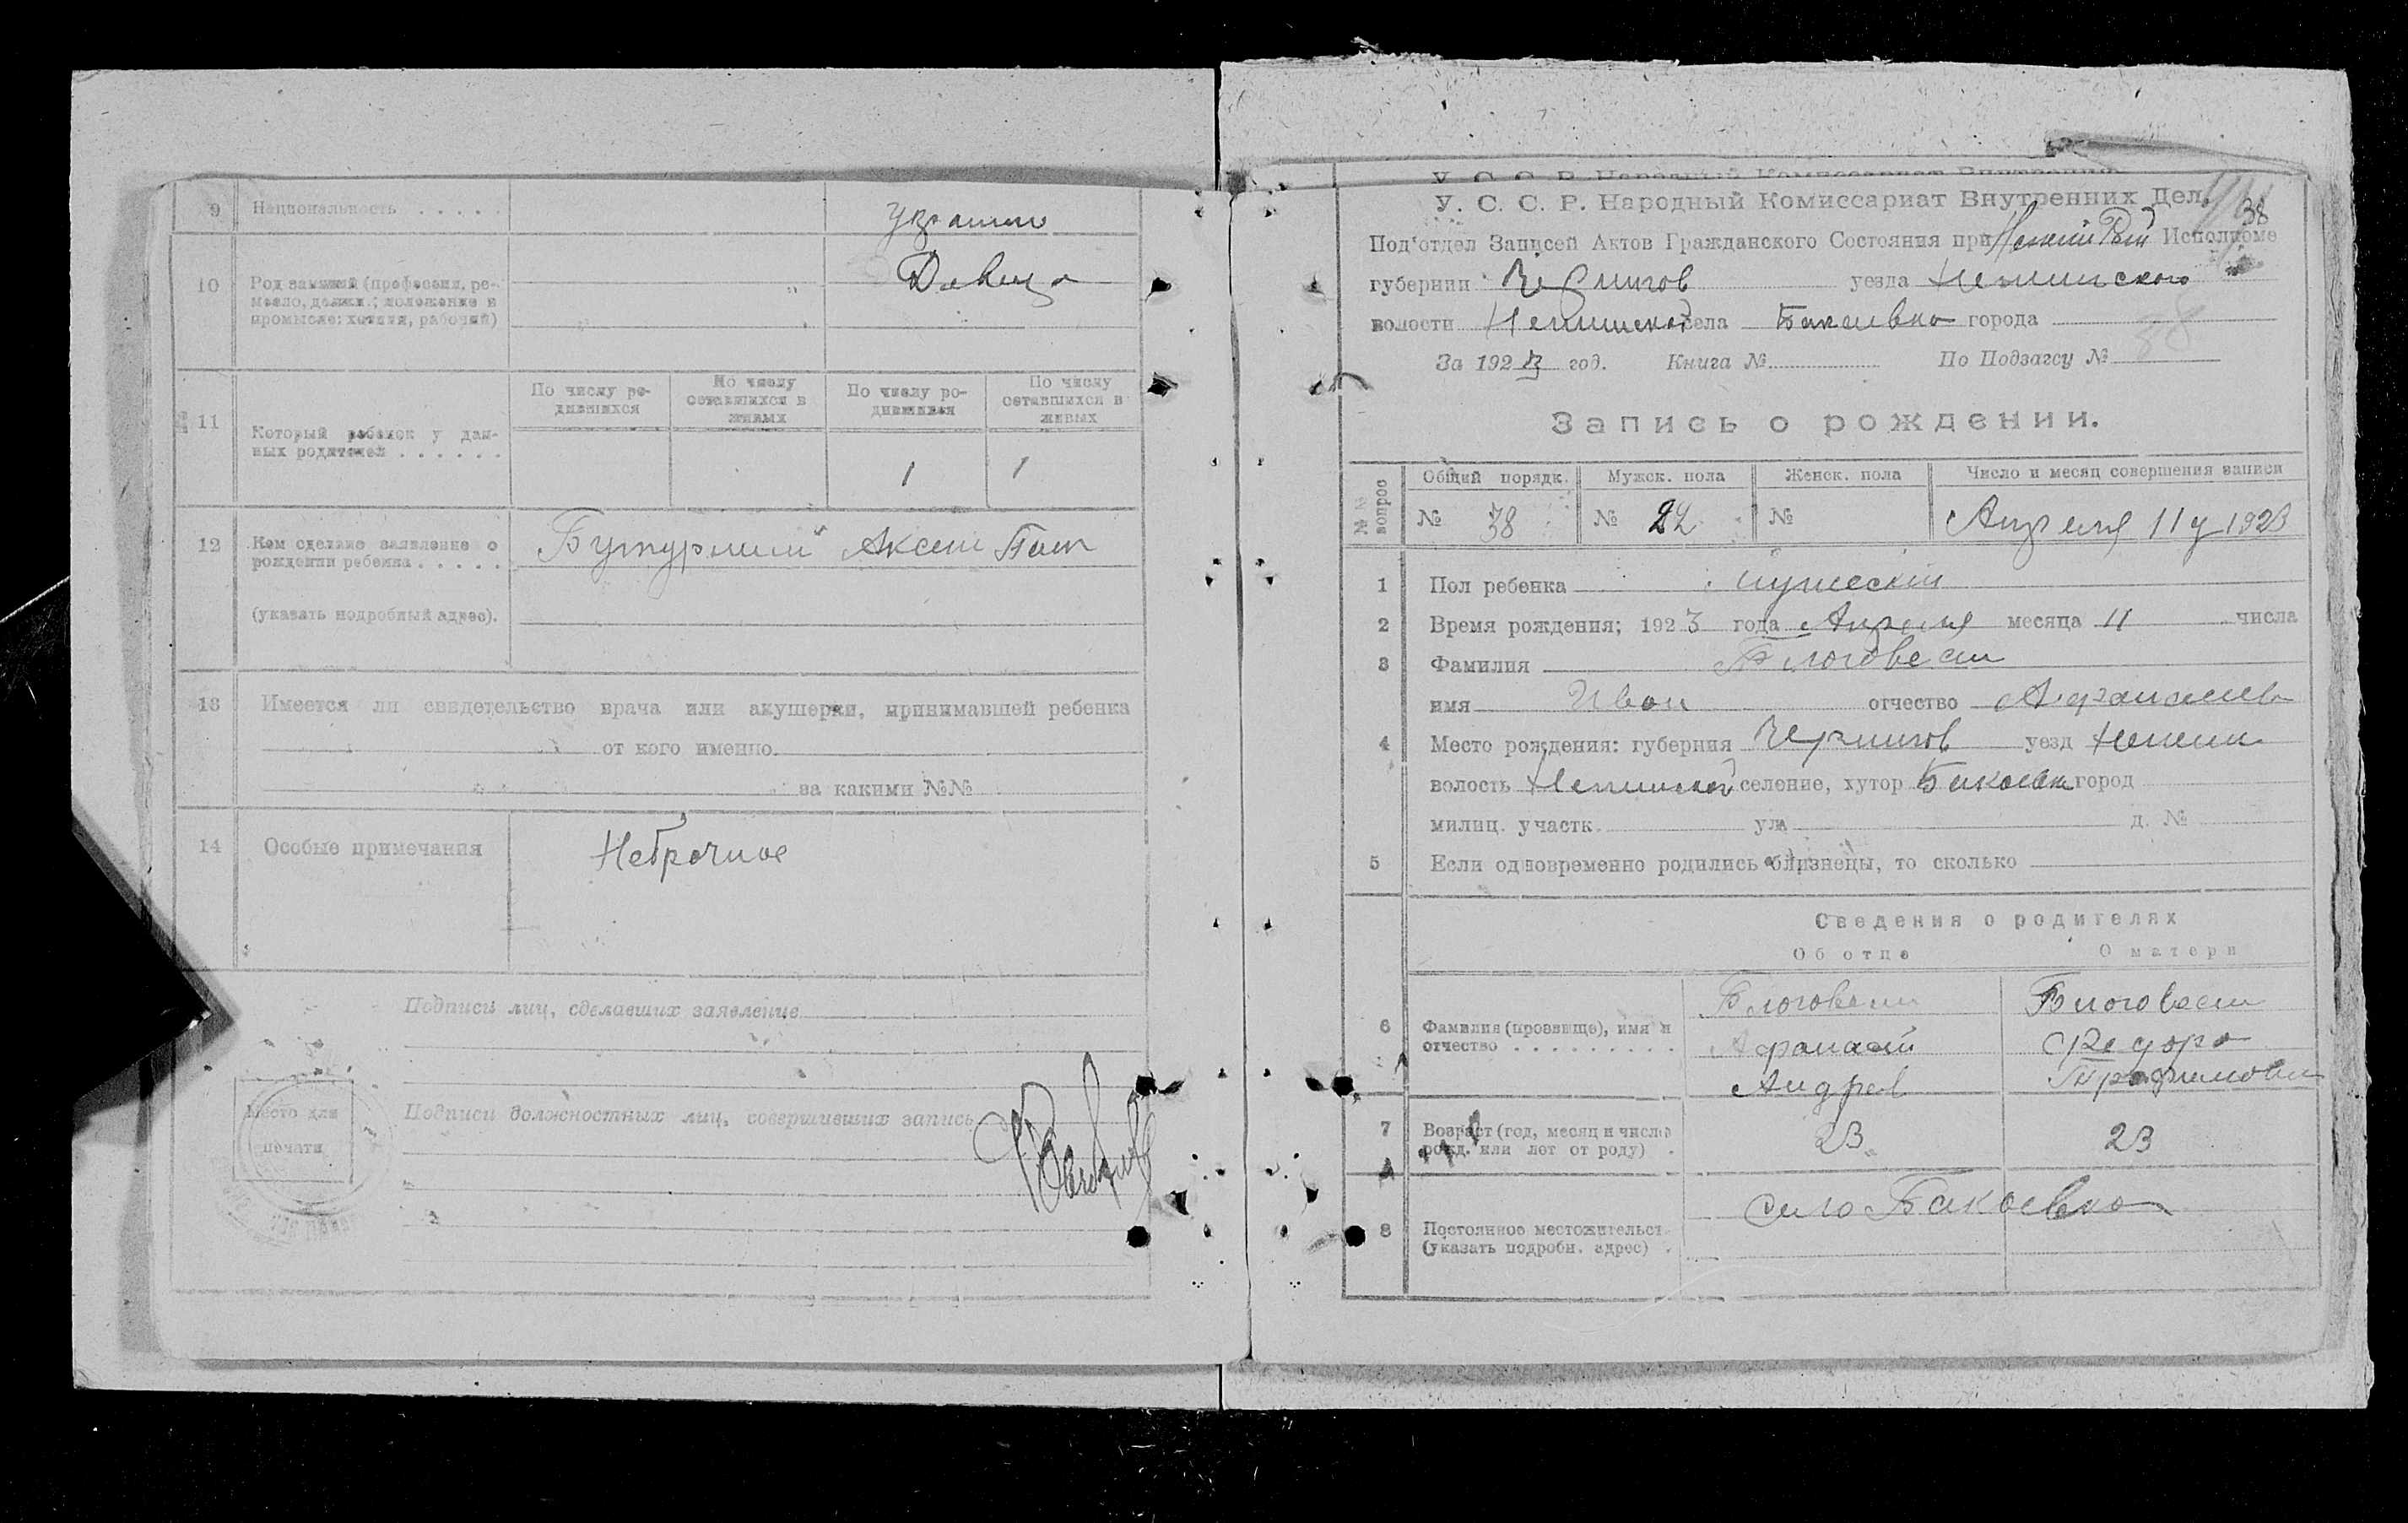 9 Национальность . . . . . украин
10 Род занятий (професия, ре-
месло, должн.; положение в
промысле: хозяин, рабочий)
Девица
11 Который ребенок у дан-
ных родителей . . . . . .
По числу ро-
дившихся
По числу
оставшихся в
живых
По числу ро-
дившихся
По числу
оставшихся в
живых
1 1
12 Кем сделано заявление о
рождении ребенка . . . . .
(указать подробный адрес).
Бутурлим Аксен
13 Имеется ли свидетельство врача или акушерки, принимавшей ребенка
от кого именно
за какими №№
14 Особые примечания
Небрачное
Подписи лиц, сделавших заявление
Место для
печати
Подписи должностных лиц, совершивших запись
У. С. С. Р. Народный Комиссариат Внутренних
У. С. С. Р. Народный Комиссариат Внутренних Дел.
38
Под'отдел Записей Актов Гражданского Состояния при Исполкоме
губернии Чернигов уезда Нежинского
волости Нежинской села Бакаевка города
38
За 1923 год. Книга № По Подзагсу №
Запись о рождении.
№№ вопрос
Общий порядк. Мужск. пола Женск. пола Число и месяц совершения записи
№ 38 № 22 № Апреля 11 у 1923
1 Пол ребенка мужеский
2 Время рождения; 1923 года Апреля месяца 11 числа
3 Фамилия Благовест
имя Иван отчество Афанасиев
4 Место рождения: губерния Чернигов уезд Нежин
волость Нежинской селение, хутор Бакаевка город
милиц. участк. ул. д. №
5 Если одновременно родились близнецы, то сколько
Сведения о родителях
Об отце О матери
6 Фамилия (прозвище), имя и
отчество . . . . . . . . .
Благовест
Афанасий
Андрев
Благовест
Федора
Трофимовна
7 Возраст (год, месяц и число
рожд. или лет от роду) .
23 23
8 Постоянное местожительст.
(указать подробн. адрес) .
село Бакаевка